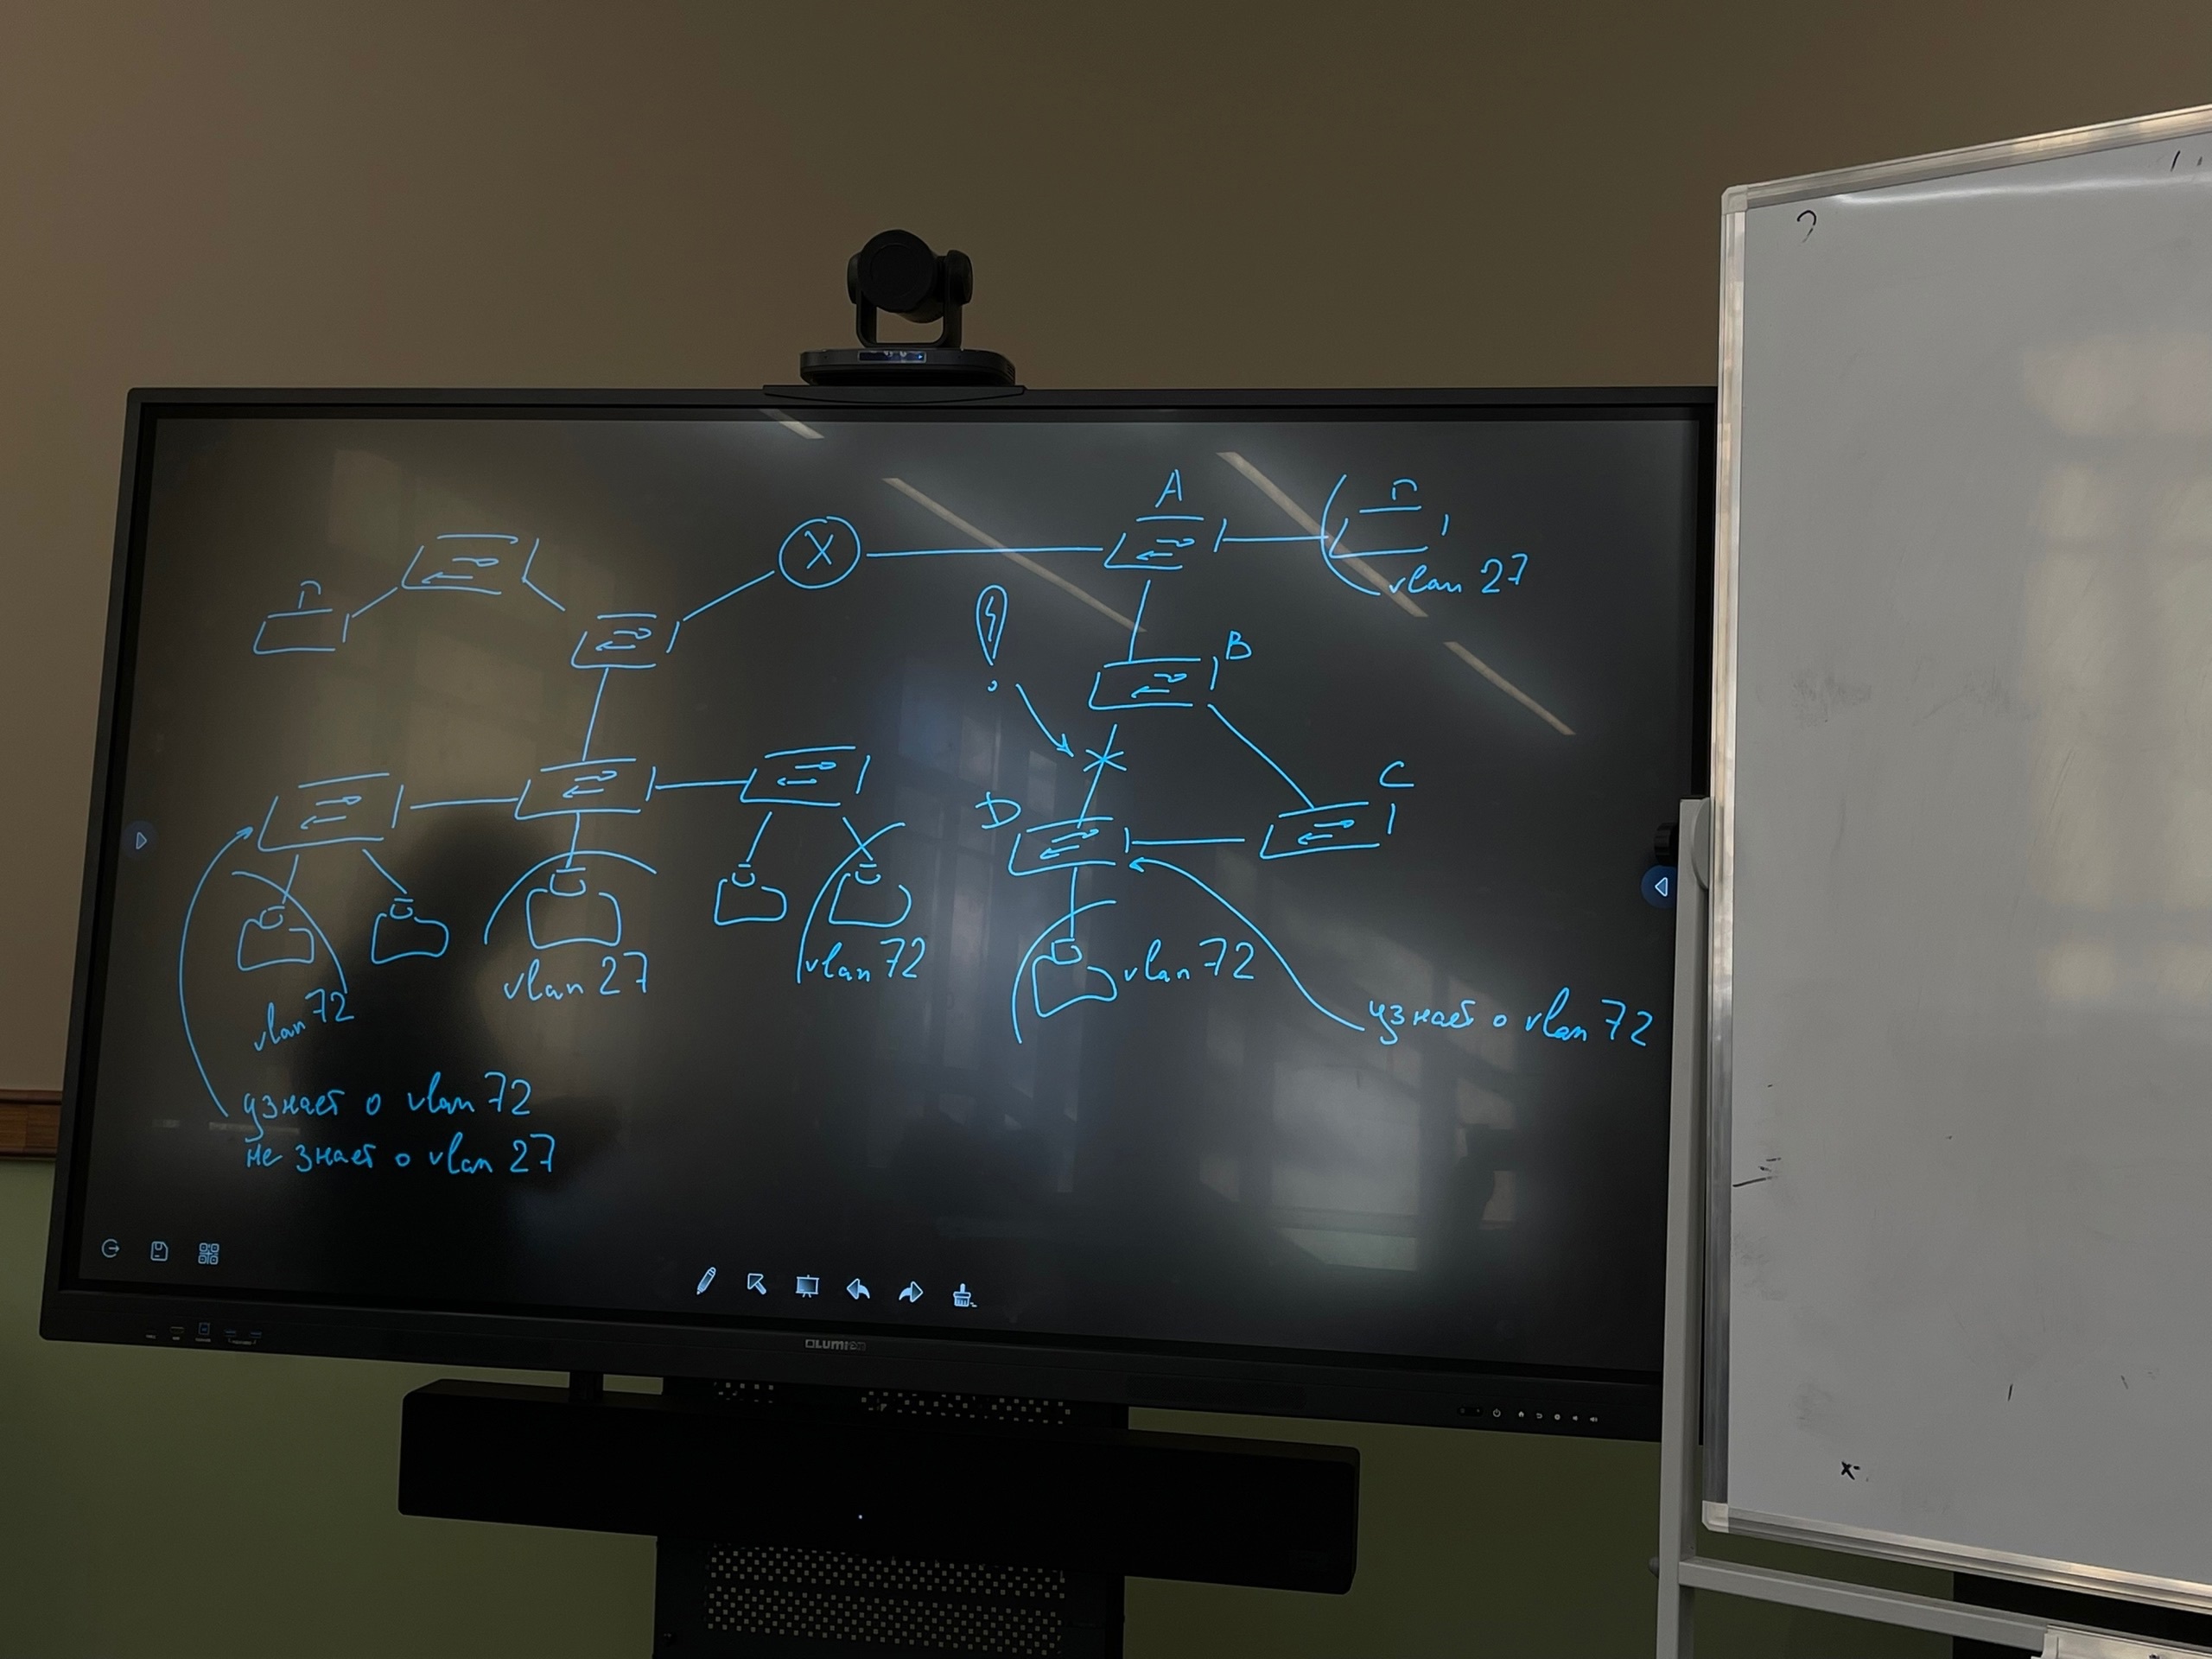 A
Г
vlan 27
X
Г
B
C
D
vlan 72
vlan 27
vlan 72
vlan 72
узнает о vlan 72
узнает о vlan 72
не знает о vlan 27
LUMIEN